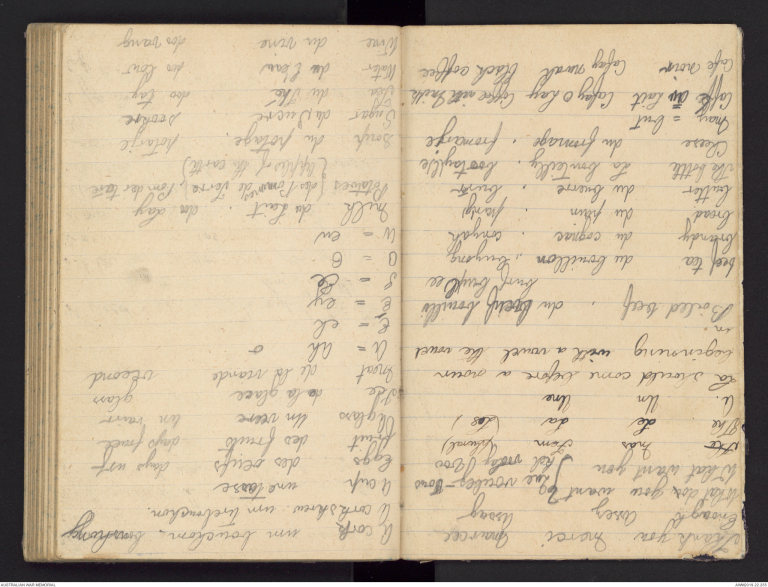 Thank you merci marcee
Enough assez assay
What do you want Que voulez-vous
What want you } kel voolay voo
The mas fem (plural)
The Le La (Les)
A. Un Une
La should come before a noun
beginning with a vowel the vowel
in.
Boiled beef. du boeuf bouilli
burf
beef tea du bouillon, buyong
brandy du cognac conyak
bread du pain pang
butter du beurre burr
La bottle La bouteilly bootaylle
Cheese du fromage. fromarge
= brut
Caffe au Lait Cafay O Lay Coffee with milk
Cafe noir Cafay nwah black coffee
A cork um bouchon. booshong
A corkscrew um
A cup une tasse
Eggs des oeufs days urf
fruit des fruits days frwee.
A glass Un verre un vairr
Ice de la glace glass
Meat de la viande veeond
A = ah o
E = el
E = ey
O = O
U = eu
Milk du Lait. du Lay
Potatoes { des Pommes de Terre Pom der taire
(apples of the earth)
Soup du potage. potarje
Sugar du Sucre sookre
Tea du thé doo tay
Water de l'eau
Wine du vine doo vang
AUSTRALIAN WAR MEMORIAL